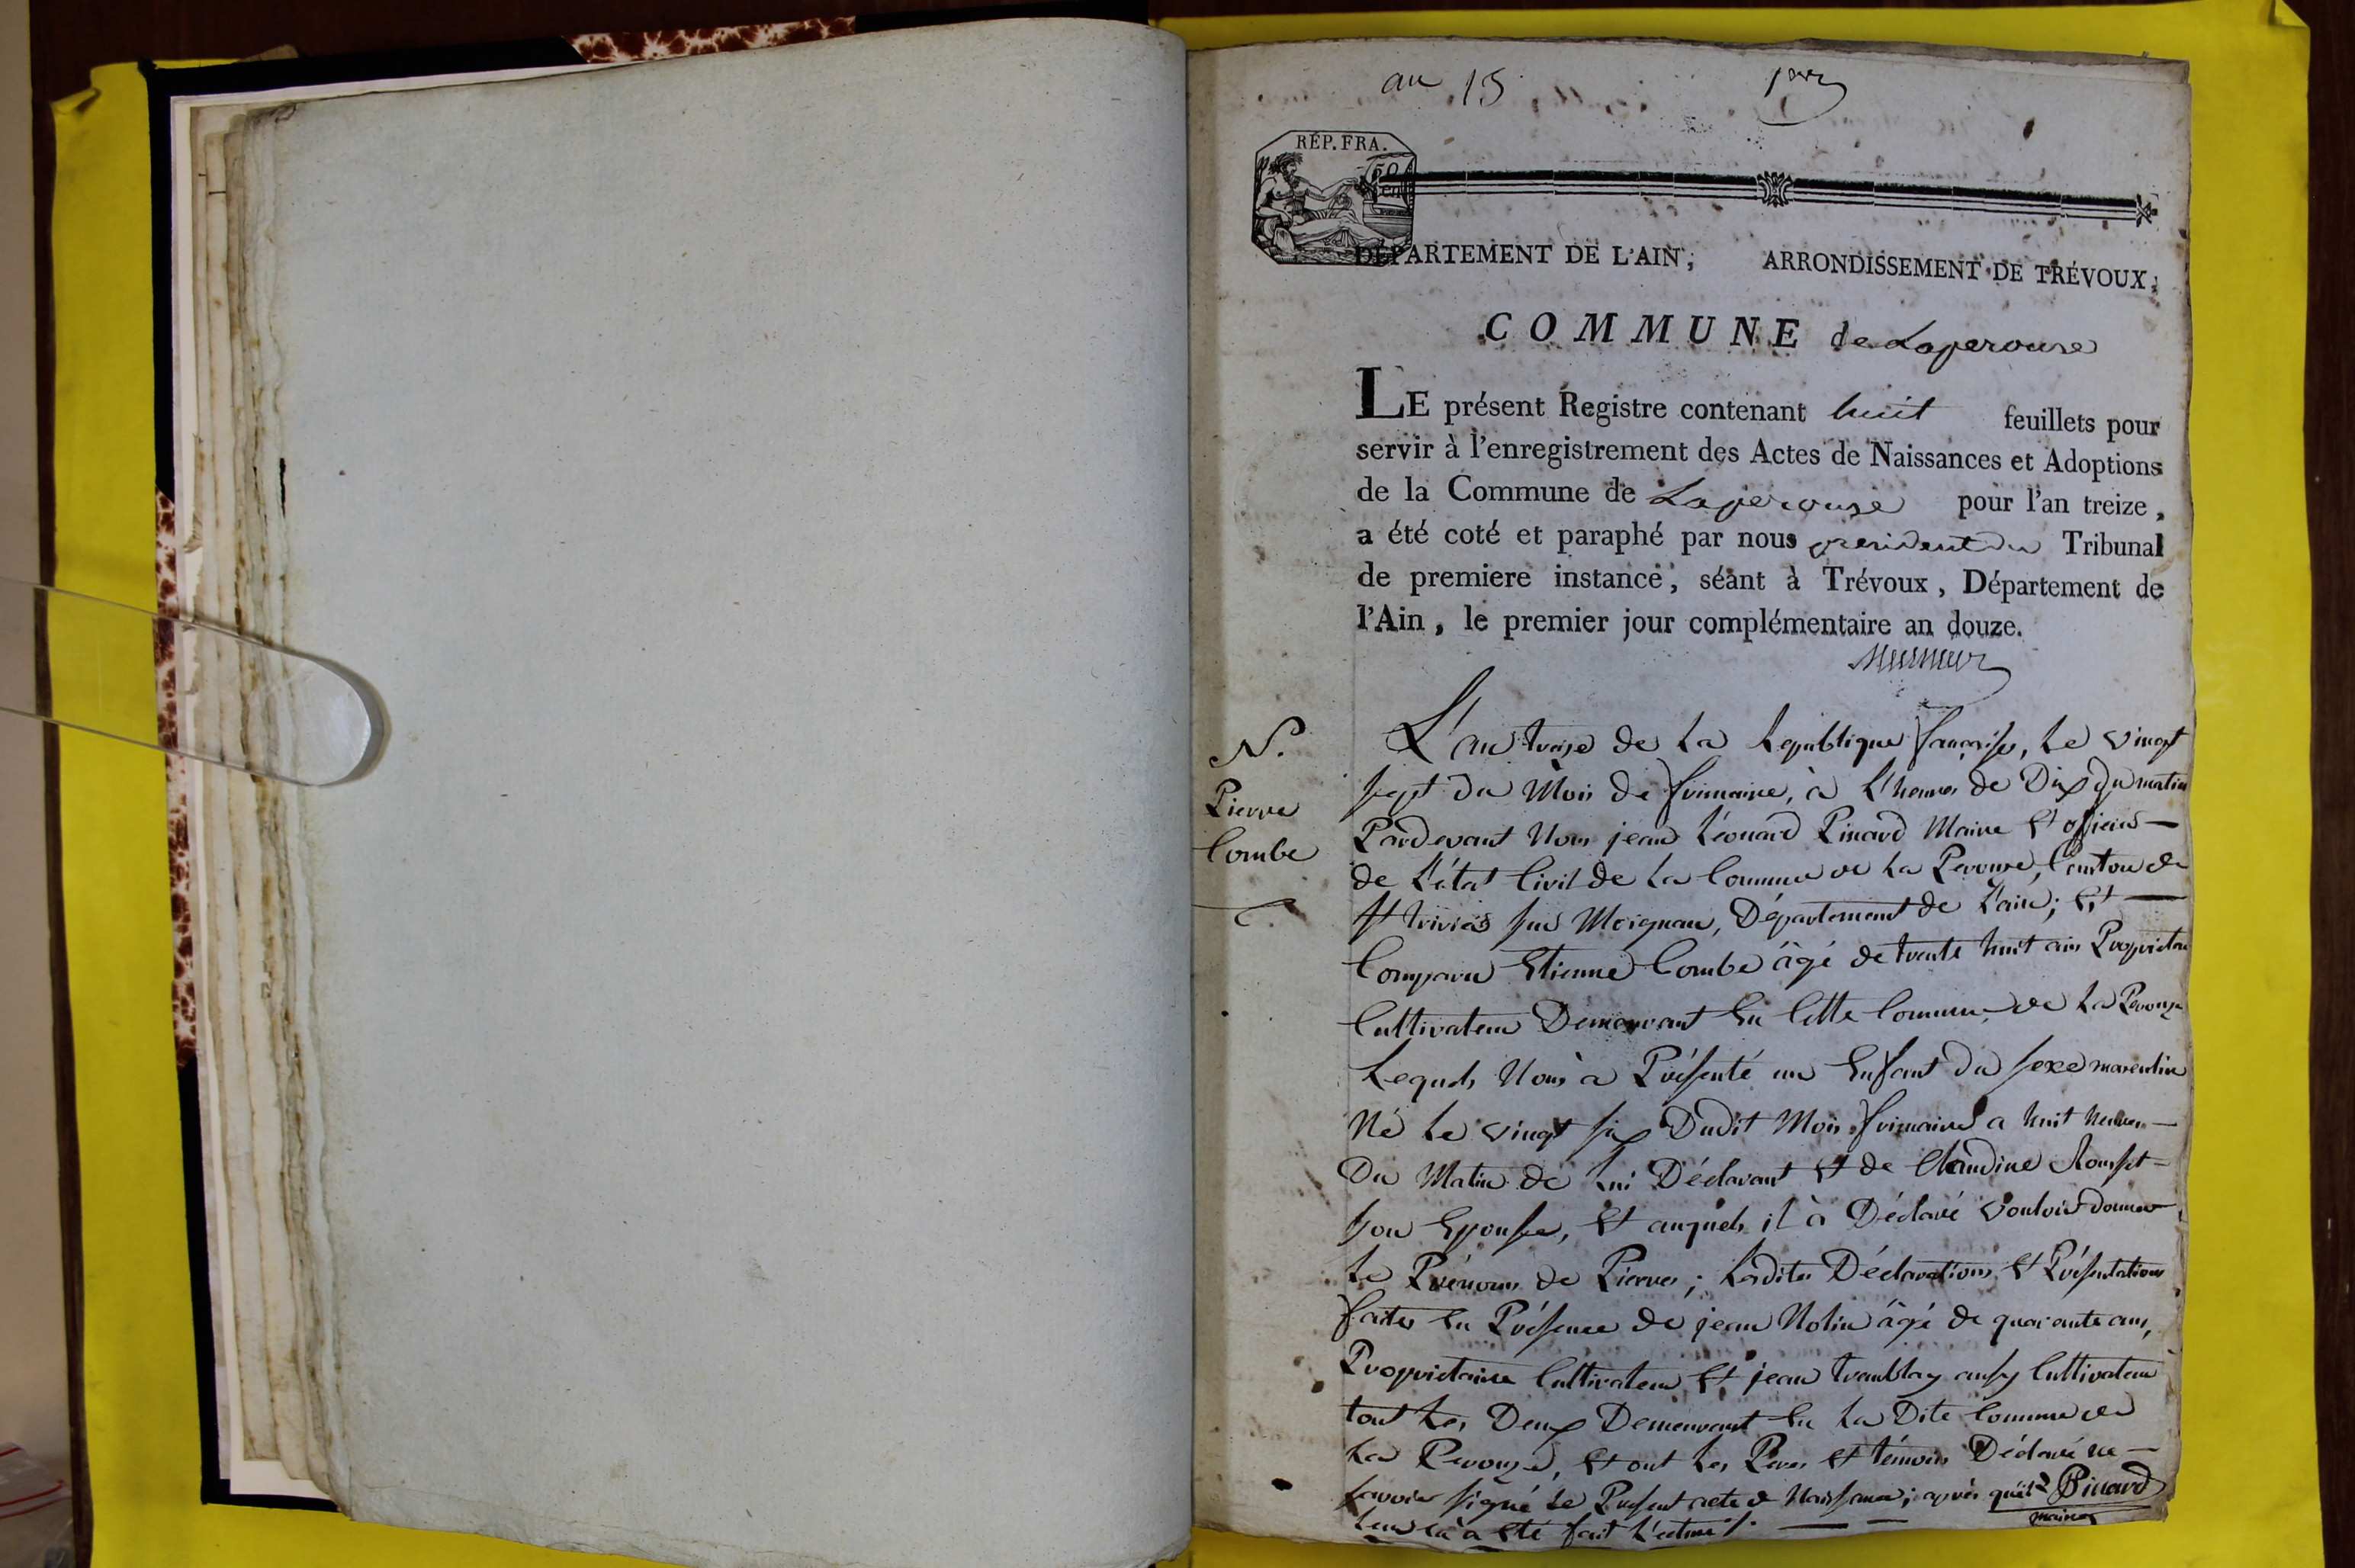 an 13
RÉP. FRA.
50
DÉPARTEMENT DE L'AIN, ARRONDISSEMENT DE TRÉVOUX,
COMMUNE de Laperouse
LE présent Registre contenant huit feuillets pour
servir à l'enregistrement des Actes de Naissances et Adoptions
de la Commune de Laperouse pour l'an treize,
a été coté et paraphé par nous president du Tribunal
de premiere instance, séant à Trévoux, Département de
l'Ain, le premier jour complémentaire an douze.
N.
Pierre
Combe
L'an treize de La Republique française, Le vingt
sept du Mois de frimaire, à L'heure de Dix du matin
Pardevant Nous jean Léonard Pinard Maire Et officier
de L'état Civil de La Commune de La Perouse, Canton de
St trivier sur Moignan, Département de L'ain; Est
Comparu Etienne Combe âgé de trente huit ans Proprietaire
Cultivateur Demeurant En Cette Commune de La Perouze
Lequel Nous à Présenté un Enfant du sexe masculin
Né Le vingt six Dudit Mois frimaire a huit heures
Du Matin de Lui Déclarant Et de Claudine Rousset
son Epouse, Et auquel il à Déclaré vouloir donner
Le Prénom de Pierre; Lesdites Déclarations Et Présentations
faites En Présence de jean Nolin âgé de quarante ans,
Proprietaire Cultivateur Et jean tremblay aussy Cultivateur
tout Les Deux Demeurant En La Dite Commune de
La Perouze, Et ont Les Peres Et témoins Déclaré ne
savoir signé Le Present acte de Naissance; après qu'il
Leur En a Eté fait Lecture /.
Pinard
maire